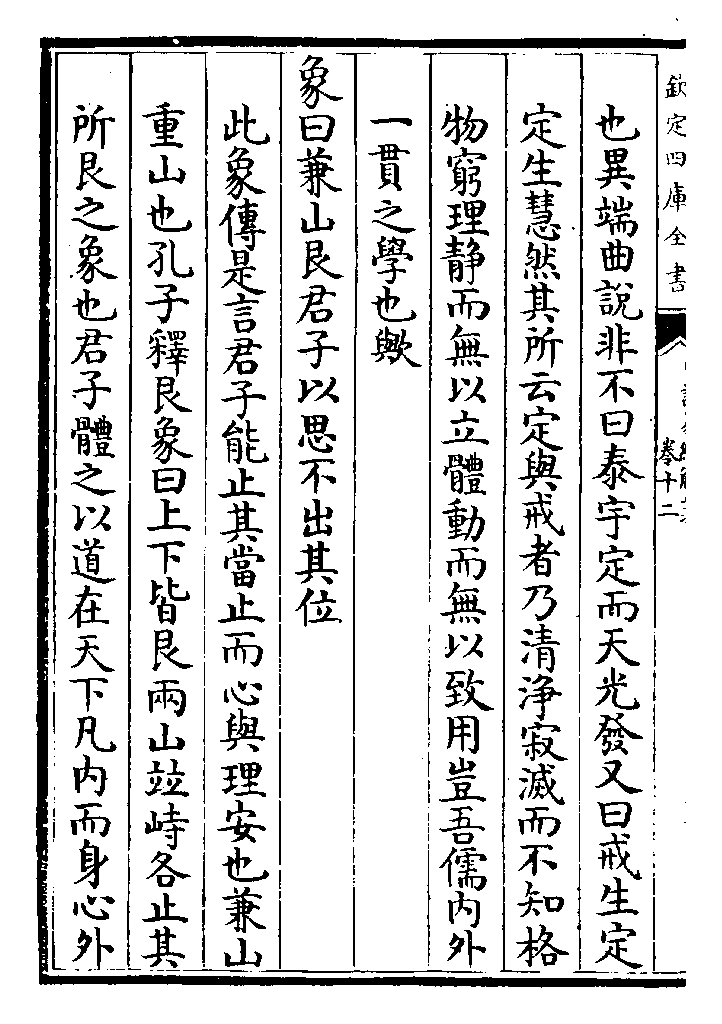 欽定四庫全書
卷十二
也異端曲說非不曰泰宇定而天光發又曰戒生定
定生慧然其所云定與戒者乃清淨寂滅而不知格
物窮理静而無以立體動而無以致用豈吾儒内外
一貫之學也歟
象曰兼山艮君子以思不出其位
此象傳是言君子能止其當止而心與理安也兼山
重山也孔子釋艮象曰上下皆艮兩山竝峙各止其
所艮之象也君子體之以道在天下凡内而身心外